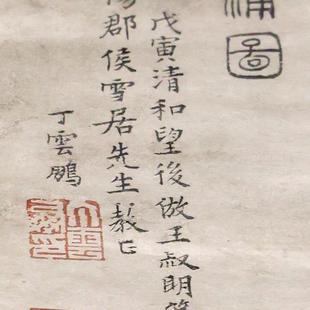 浦圖
戊寅清和望後倣王叔明筆
郡侯雪居先生教正
丁雲鵬